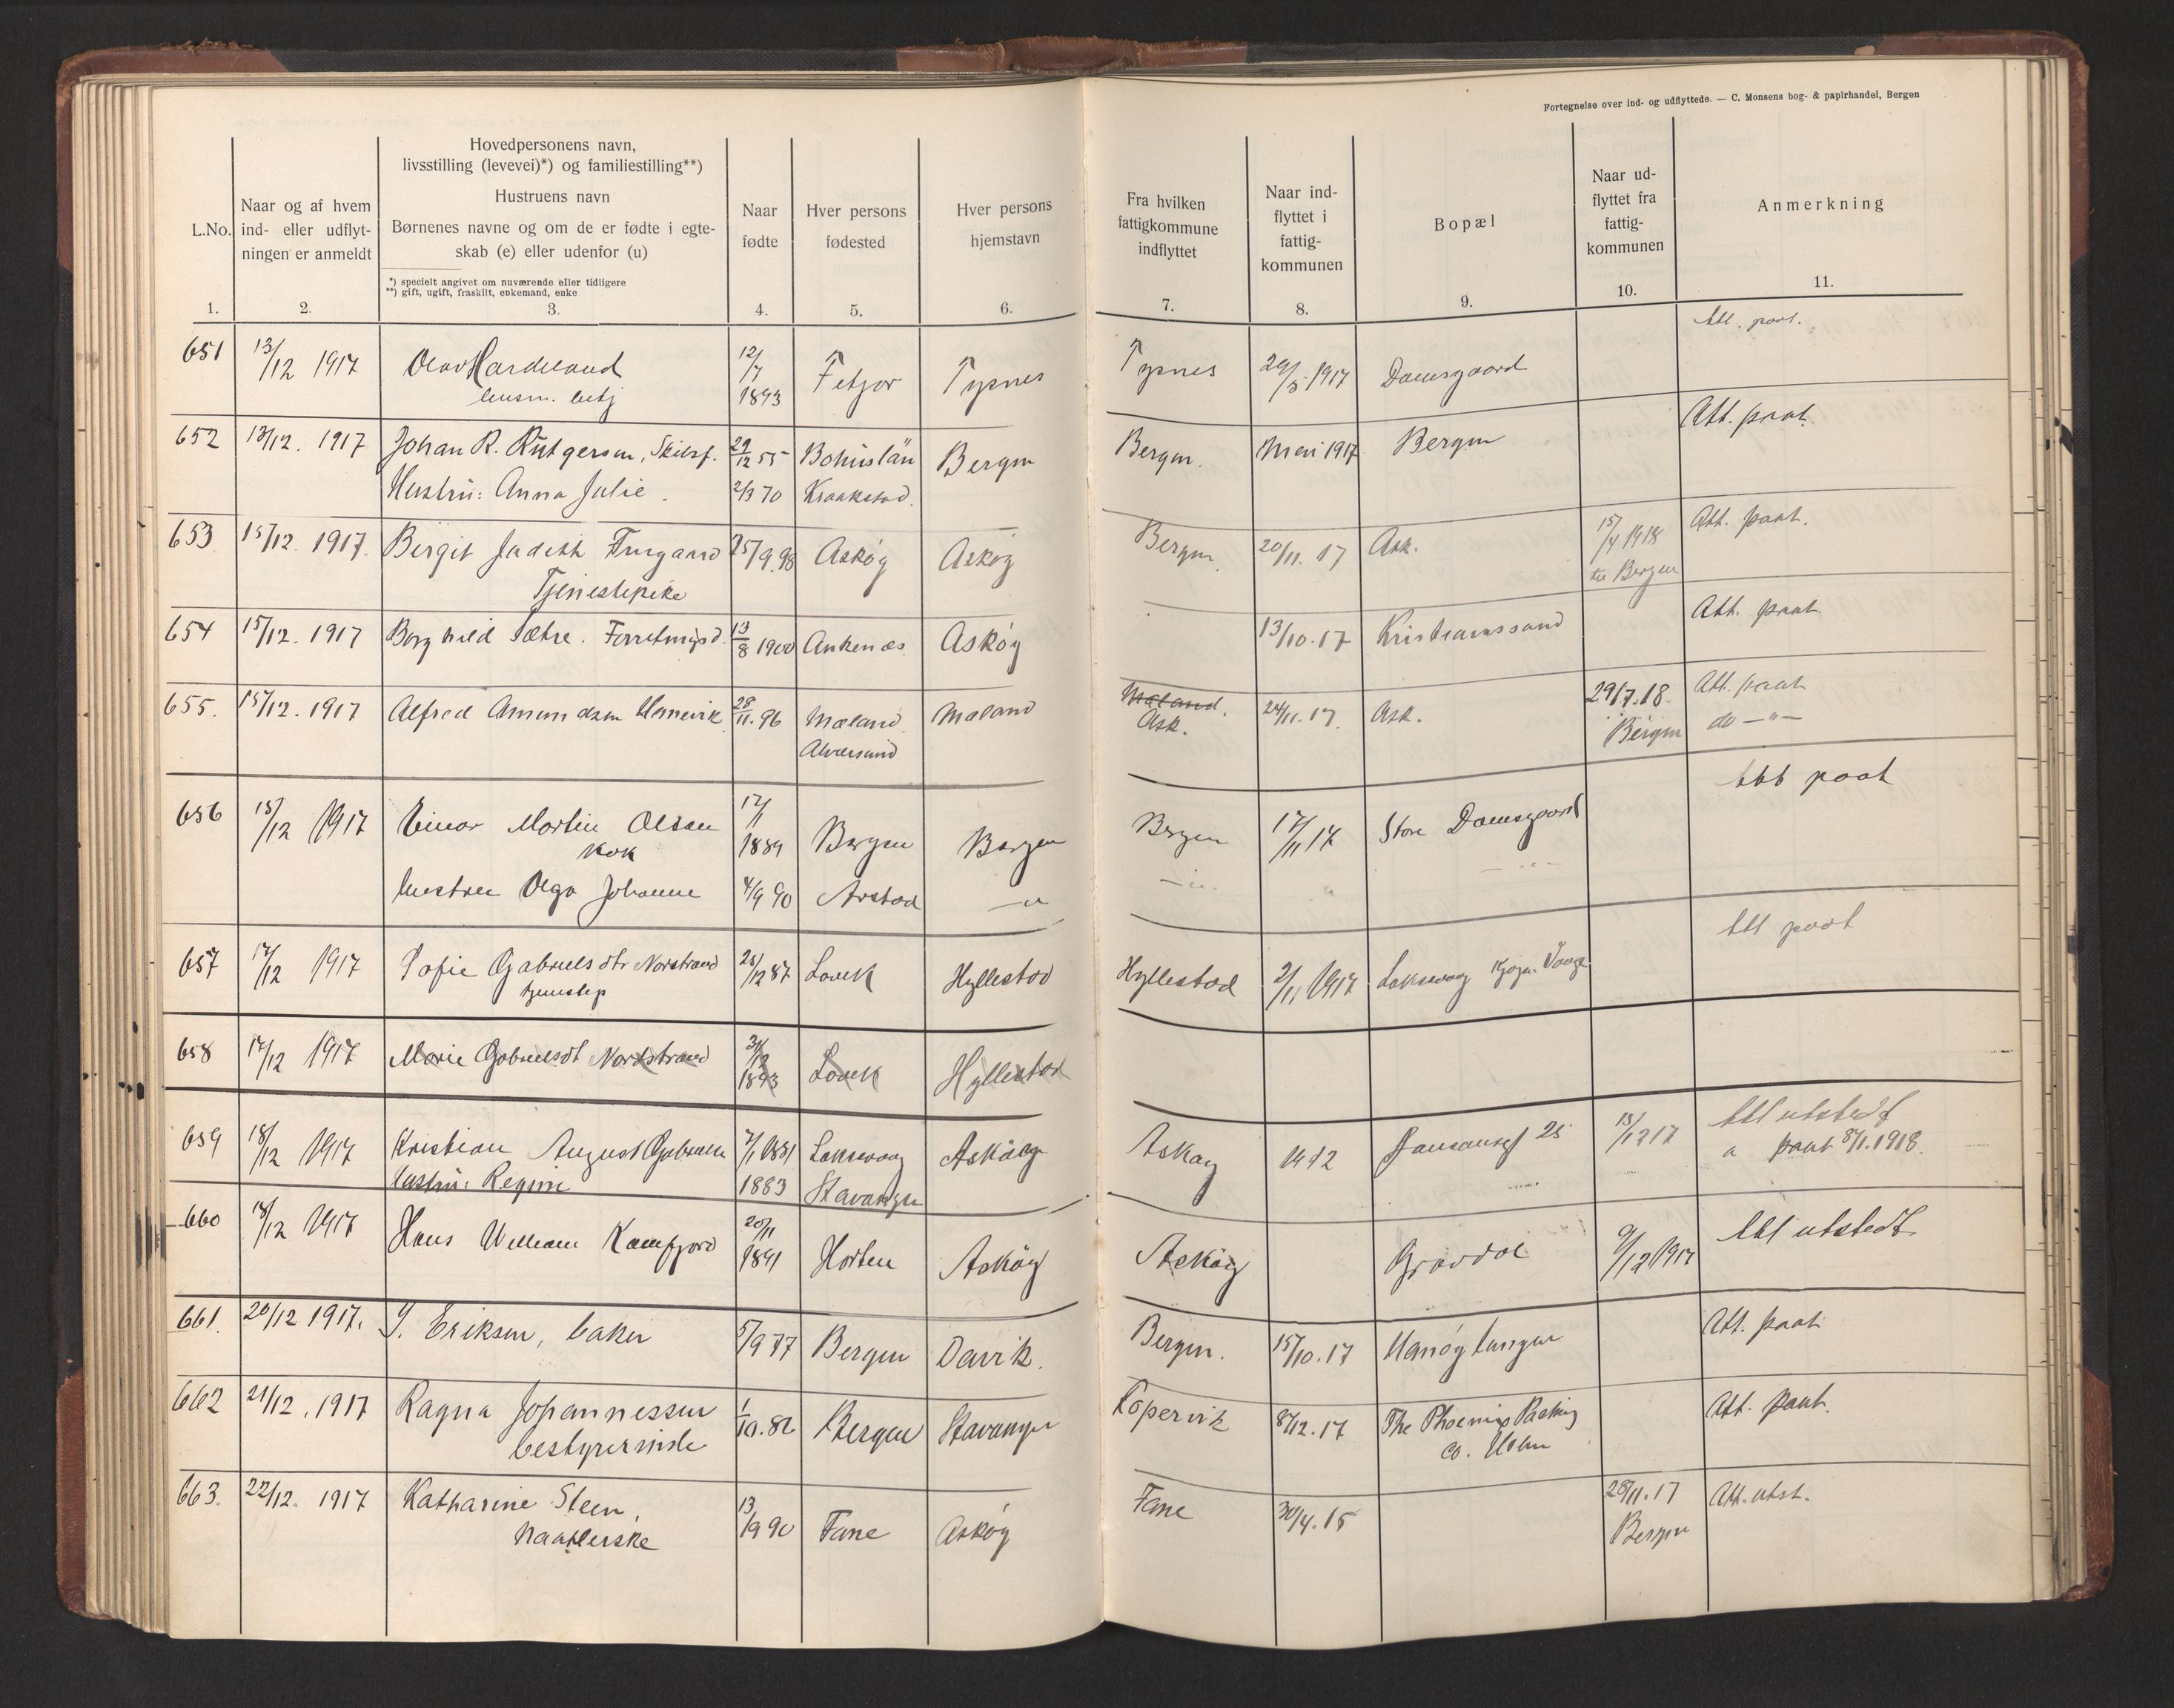 Fortegnelse over ind- og udflyttede. — C. Monsens bog- & papirhandel, Bergen
L.No.
1.
Naar og af hvem
ind- eller udflyt-
ningen er anmeldt
2.
Hovedpersonens navn,
livsstilling (levevei)*) og familiestilling**)
Hustruens navn
Børnenes navne og om de er fødte i egte-
skab (e) eller udenfor (u)
*) specielt angivet om nuværende eller tidligere
**) gift, ugift, fraskilt, enkemand, enke
3.
Naar
fødte
4.
Hver persons
fødested
5.
Hver persons
hjemstavn
6.
Fra hvilken
fattigkommune
indflyttet
7.
Naar ind-
flyttet i
fattig-
kommunen
8.
Bopæl
9.
Naar ud-
flyttet fra
fattig-
kommunen
10.
Anmerkning
11.
651 13/12 1917 Olav Hardeland 12/7 1893 Tysnes Tysnes 29/5 1917 Damsgaard Att. paat.
652 13/12. 1917 Johan R. Rutgersen, 29/12 55 Bohuslän Bergen Bergen. Mai 1917 Bergen Att. paat.
Hustru: Anna Julie. 2/3 70 Kraakstad.
653 15/12. 1917. Bergit Judith 25/9.98 Askøy Askøy Bergen 20/11. 17 Ask. 15/4 1918 Att. paat.
Tjenestepike til Bergen
654 15/12. 1917 Borghild Sætre. 13/8 1900 Ankenæs Askøy 13/10.17 Kristianssand Att. paat.
655. 15/12. 1917 Alfred Amundsen 28/11.96 Mæland Mæland Mæland. 24/11.17. Ask. 29/7.18. Att. paat
Alversund Ask. Bergen do —"—
656 15/12 1917 Einar Martin Olsen 17/1 1889 Bergen Bergen Bergen 17/11 17 Store Damsgaard Att paat
Kok
hustru Olga Johanne 4/9 90 Arstad —"— —"— " —"—
657 17/12 1917 Sofie Gabrielsdtr Norstrand 12 87 Lavik Hyllestad Hyllestad 2/11 1917 Laksevaag Att paat
tjenestep
658 17/12 1917 Marie Gabrielsdt Nordstrand 1893 Lavik Hyllestad
659 18/12 1917 Kristian August Gabrielsen 7/1 1881 Laksevaag Askøy Askøy 1912 25 15/12 17 Att utstedt
Hustru: Regine 1883 Stavanger a paat 8/1.1918.
660 18/12 1917 Hans William Kamfjord 20/11 1891 Horten Askøy Askøy Gravdal 9/12 1917 Att utstedt.
661. 20/12 1917. Eriksen, baker 5/9 77 Bergen Davik. Bergen. 15/10.17 Att. paat
662 21/12. 1917 Ragna Johannessen 1/10.82 Bergen Stavanger Kopervik 8/12.17 The Phoenix Packing Att. paat.
bestyrerinde Co.
663. 22/12. 1917 Katharine Steen, 13/9 90 Fane Askøy Fane 30/4.15 28/11.17 Att. utst.
Naatlerske Bergen